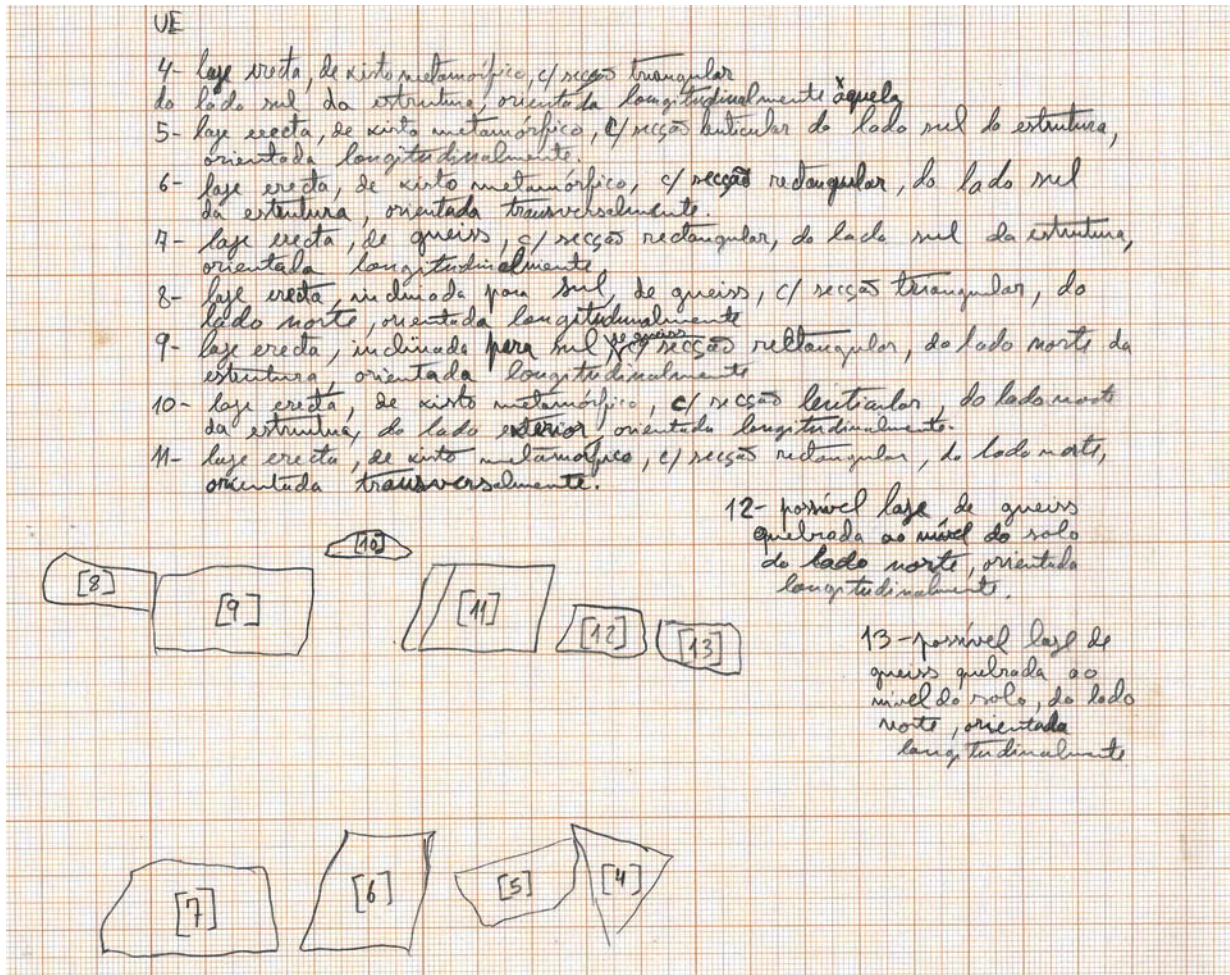 UE
4- laje erecta, de xisto metamórfico, c/ secção triangular
do lado sul da estrutura, orientada longitudinalmente àquela
5- laje erecta, de xisto metamórfico, c/ secção lenticular do lado sul da estrutura,
orientada longitudinalmente.
6- laje erecta, de xisto metamórfico, c/ secção rectangular, do lado sul
da estrutura, orientada transversalmente.
7- laje erecta, de gneiss, c/ secção rectangular, do lado sul da estrutura,
orientada longitudinalmente
8- laje erecta, inclinada para sul, de gneiss, c/ secção triangular, do
lado norte, orientada longitudinalmente
9- laje erecta, inclinada para sul, de gneiss c/ secção rectangular, do lado norte da
estrutura, orientada longitudinalmente
10- laje erecta, de xisto metamórfico, c/ secção lenticular, do lado norte
da estrutura, do lado exterior, orientada longitudinalmente.
11- laje erecta, de xisto metamórfico, c/ secção rectangular, do lado norte,
orientada transversalmente.
12- possível laje de gneiss
quebrada ao nível do solo
do lado norte, orientada
longitudinalmente.
13- possível laje de
gneiss quebrada ao
nível do solo, do lado
norte, orientada
longitudinalmente
[10]
[8]
[9]
[11]
[12]
[13]
[7]
[6]
[5]
[4]